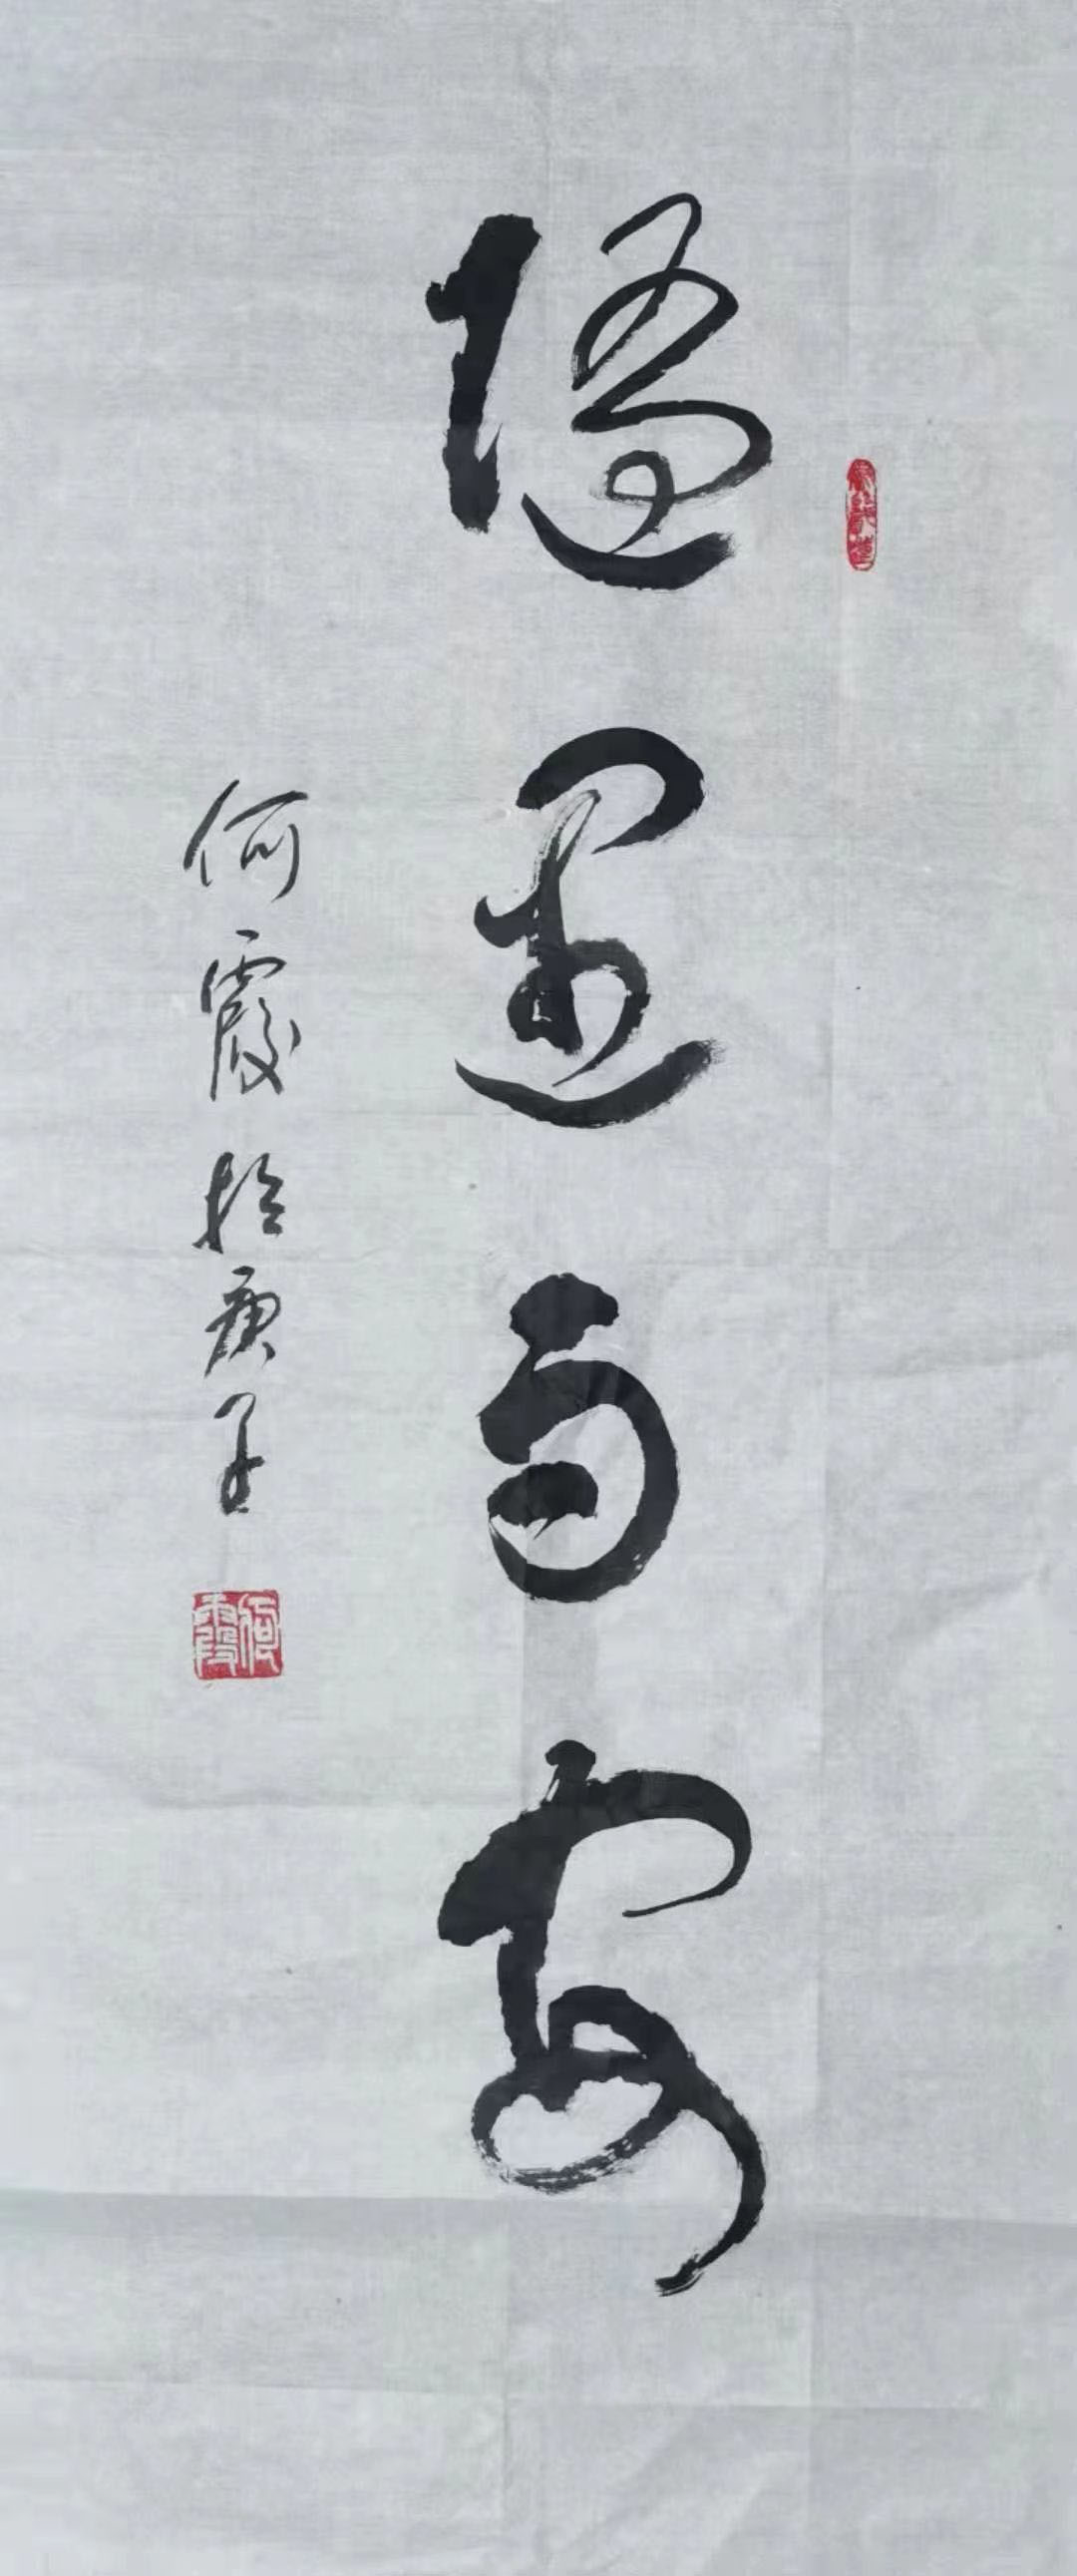 隨遇而安
何霞於庚子
何霞